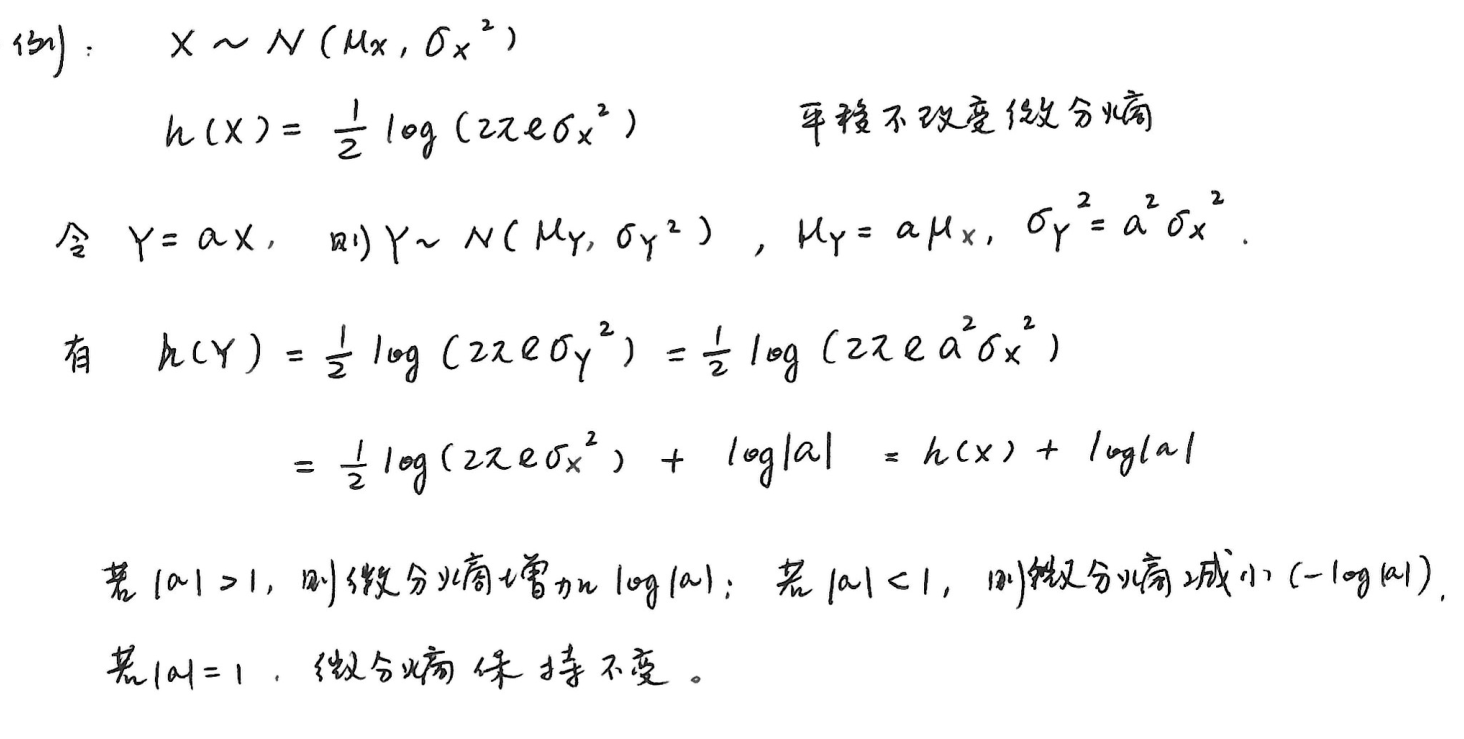 例: X ~ N(μx, σx²)
h(X) = 1/2 log(2πeσx²) 平移不改变微分熵
令 Y = aX, 则 Y ~ N(μY, σY²), μY = aμx, σY² = a²σx².
有 h(Y) = 1/2 log(2πeσY²) = 1/2 log(2πea²σx²)
= 1/2 log(2πeσx²) + log|a| = h(X) + log|a|
若|a|>1, 则微分熵增加log|a|; 若|a|<1, 则微分熵减小(-log|a|).
若|a|=1. 微分熵保持不变。